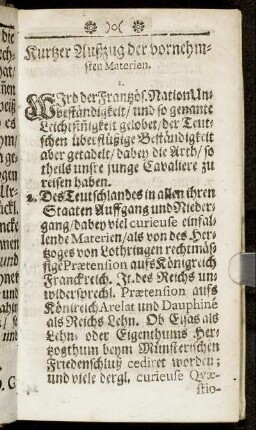 )o(
Kurtzer Außzug der vornehm-
sten Materien.
1.
WIrd der Frantzös. Nation Un-
beständigkeit/ und so genante
Leichtsinnigkeit gelobet/ der Teut-
schen überflüßige Beständigkeit
aber getadelt/ dabey die Arth/ so
theils unsre junge Cavaliere zu
reisen haben.
2. Des Teutschlandes in allen ihren
Staaten Auffgang und Nieder-
gang/ dabey viel curieuse einfal-
lende Materien/ als von des Her-
tzoges von Lothringen rechtmäß
sige Prætension auffs Königreich
Franckreich. It. des Reichs un-
widersprechl. Prætension auffs
Könireich Arelat und Dauphiné
als Reichs Lehn. Ob Elsas als
Lehn- oder Eigenthums Her-
tzogthum beym Münsterischen
Friedenschluß cediret worden;
und viele dergl. curieuse Quæ-
stio-